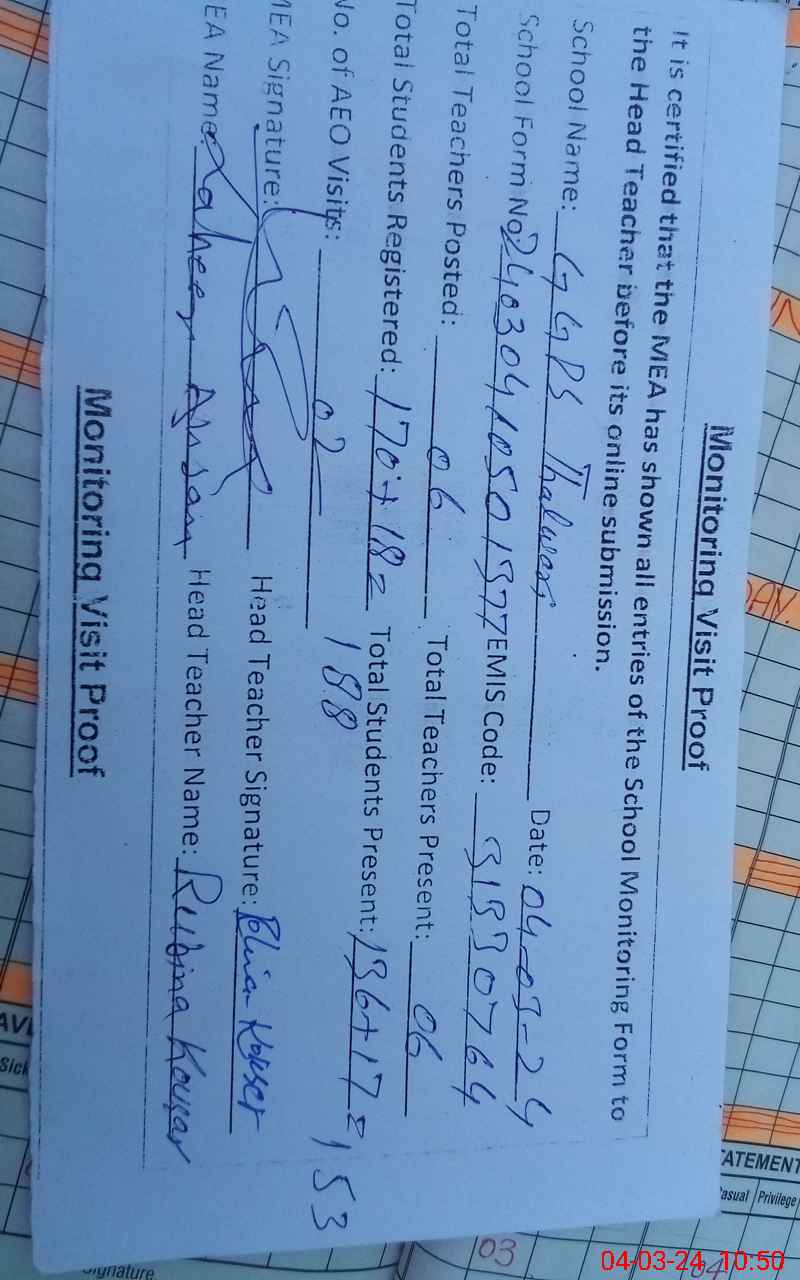 Monitoring Visit Proof
It is certified that the MEA has shown all entries of the School Monitoring Form to
the Head Teacher before its online submission.
School Name: GGPS Date: 04-03-24
School Form No. 24030410501377 EMIS Code: 31330764
Total Teachers Posted: 06 Total Teachers Present: 06
Total Students Registered: 170+18= 188 Total Students Present: 136+17=153
No. of AEO Visits: 02
MEA Signature: Head Teacher Signature: Rubina Kouser
EA Name: Anjam Head Teacher Name: Rubina Kousar
Monitoring Visit Proof
ATEMENT
asual Privilege
Sick
ignature.
03
04
04-03-24 10:50